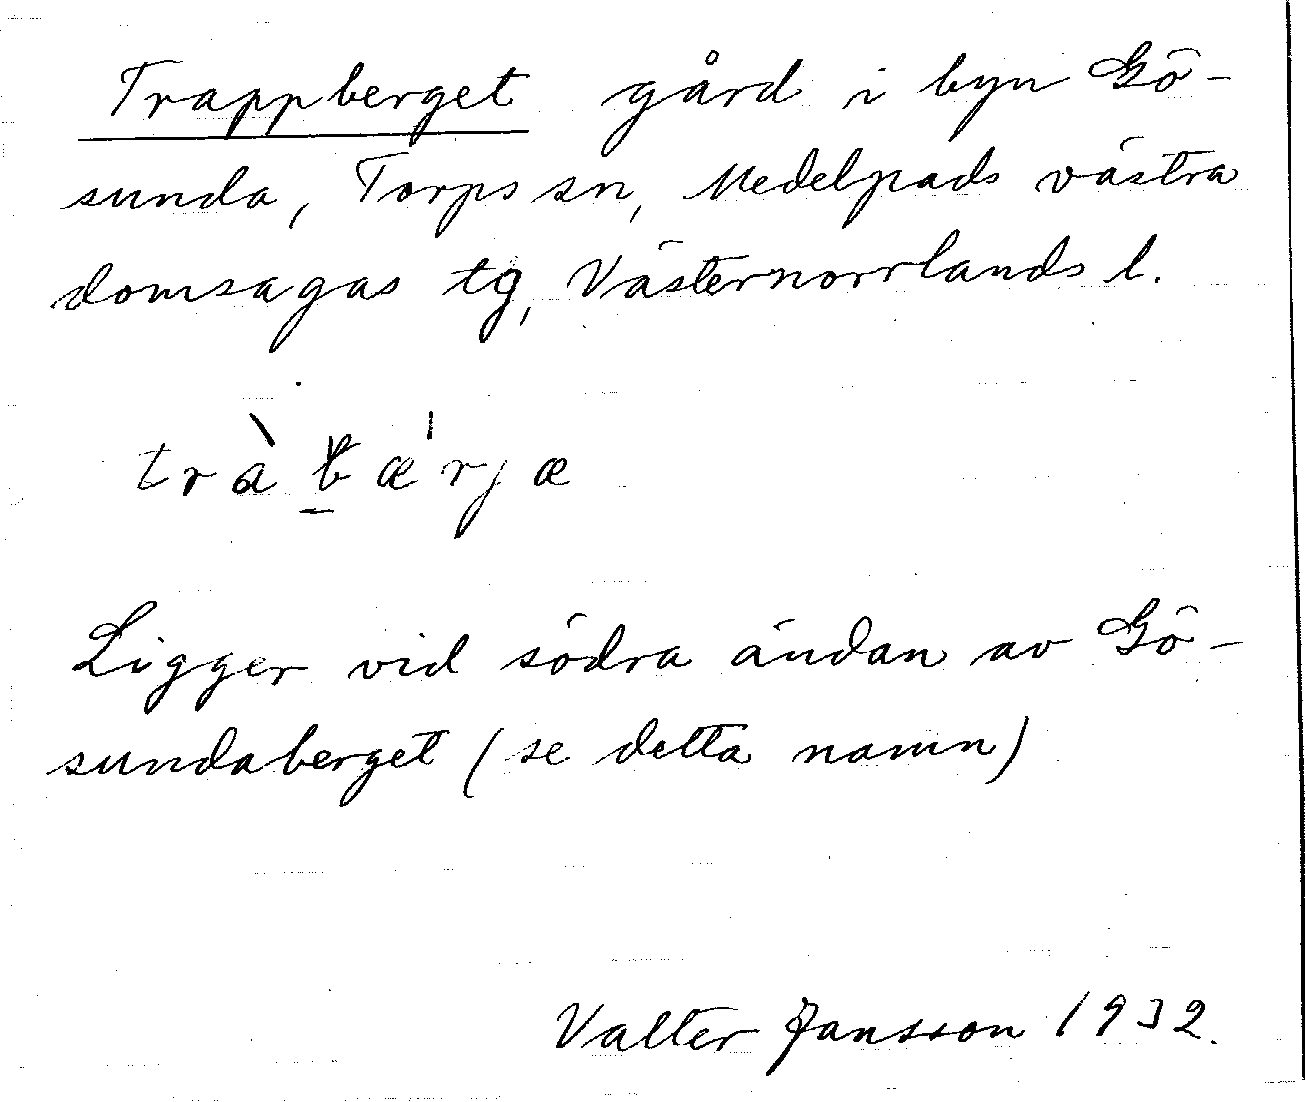 Trappberget gård i byn Gö-
sunda, Torps sn, Medelpads västra
domsagas tg, Västernorrlands l.
tràbæ'rjæ
Ligger vid södra ändan av Gö-
sundaberget (se detta namn)
Valter Jansson 1932.